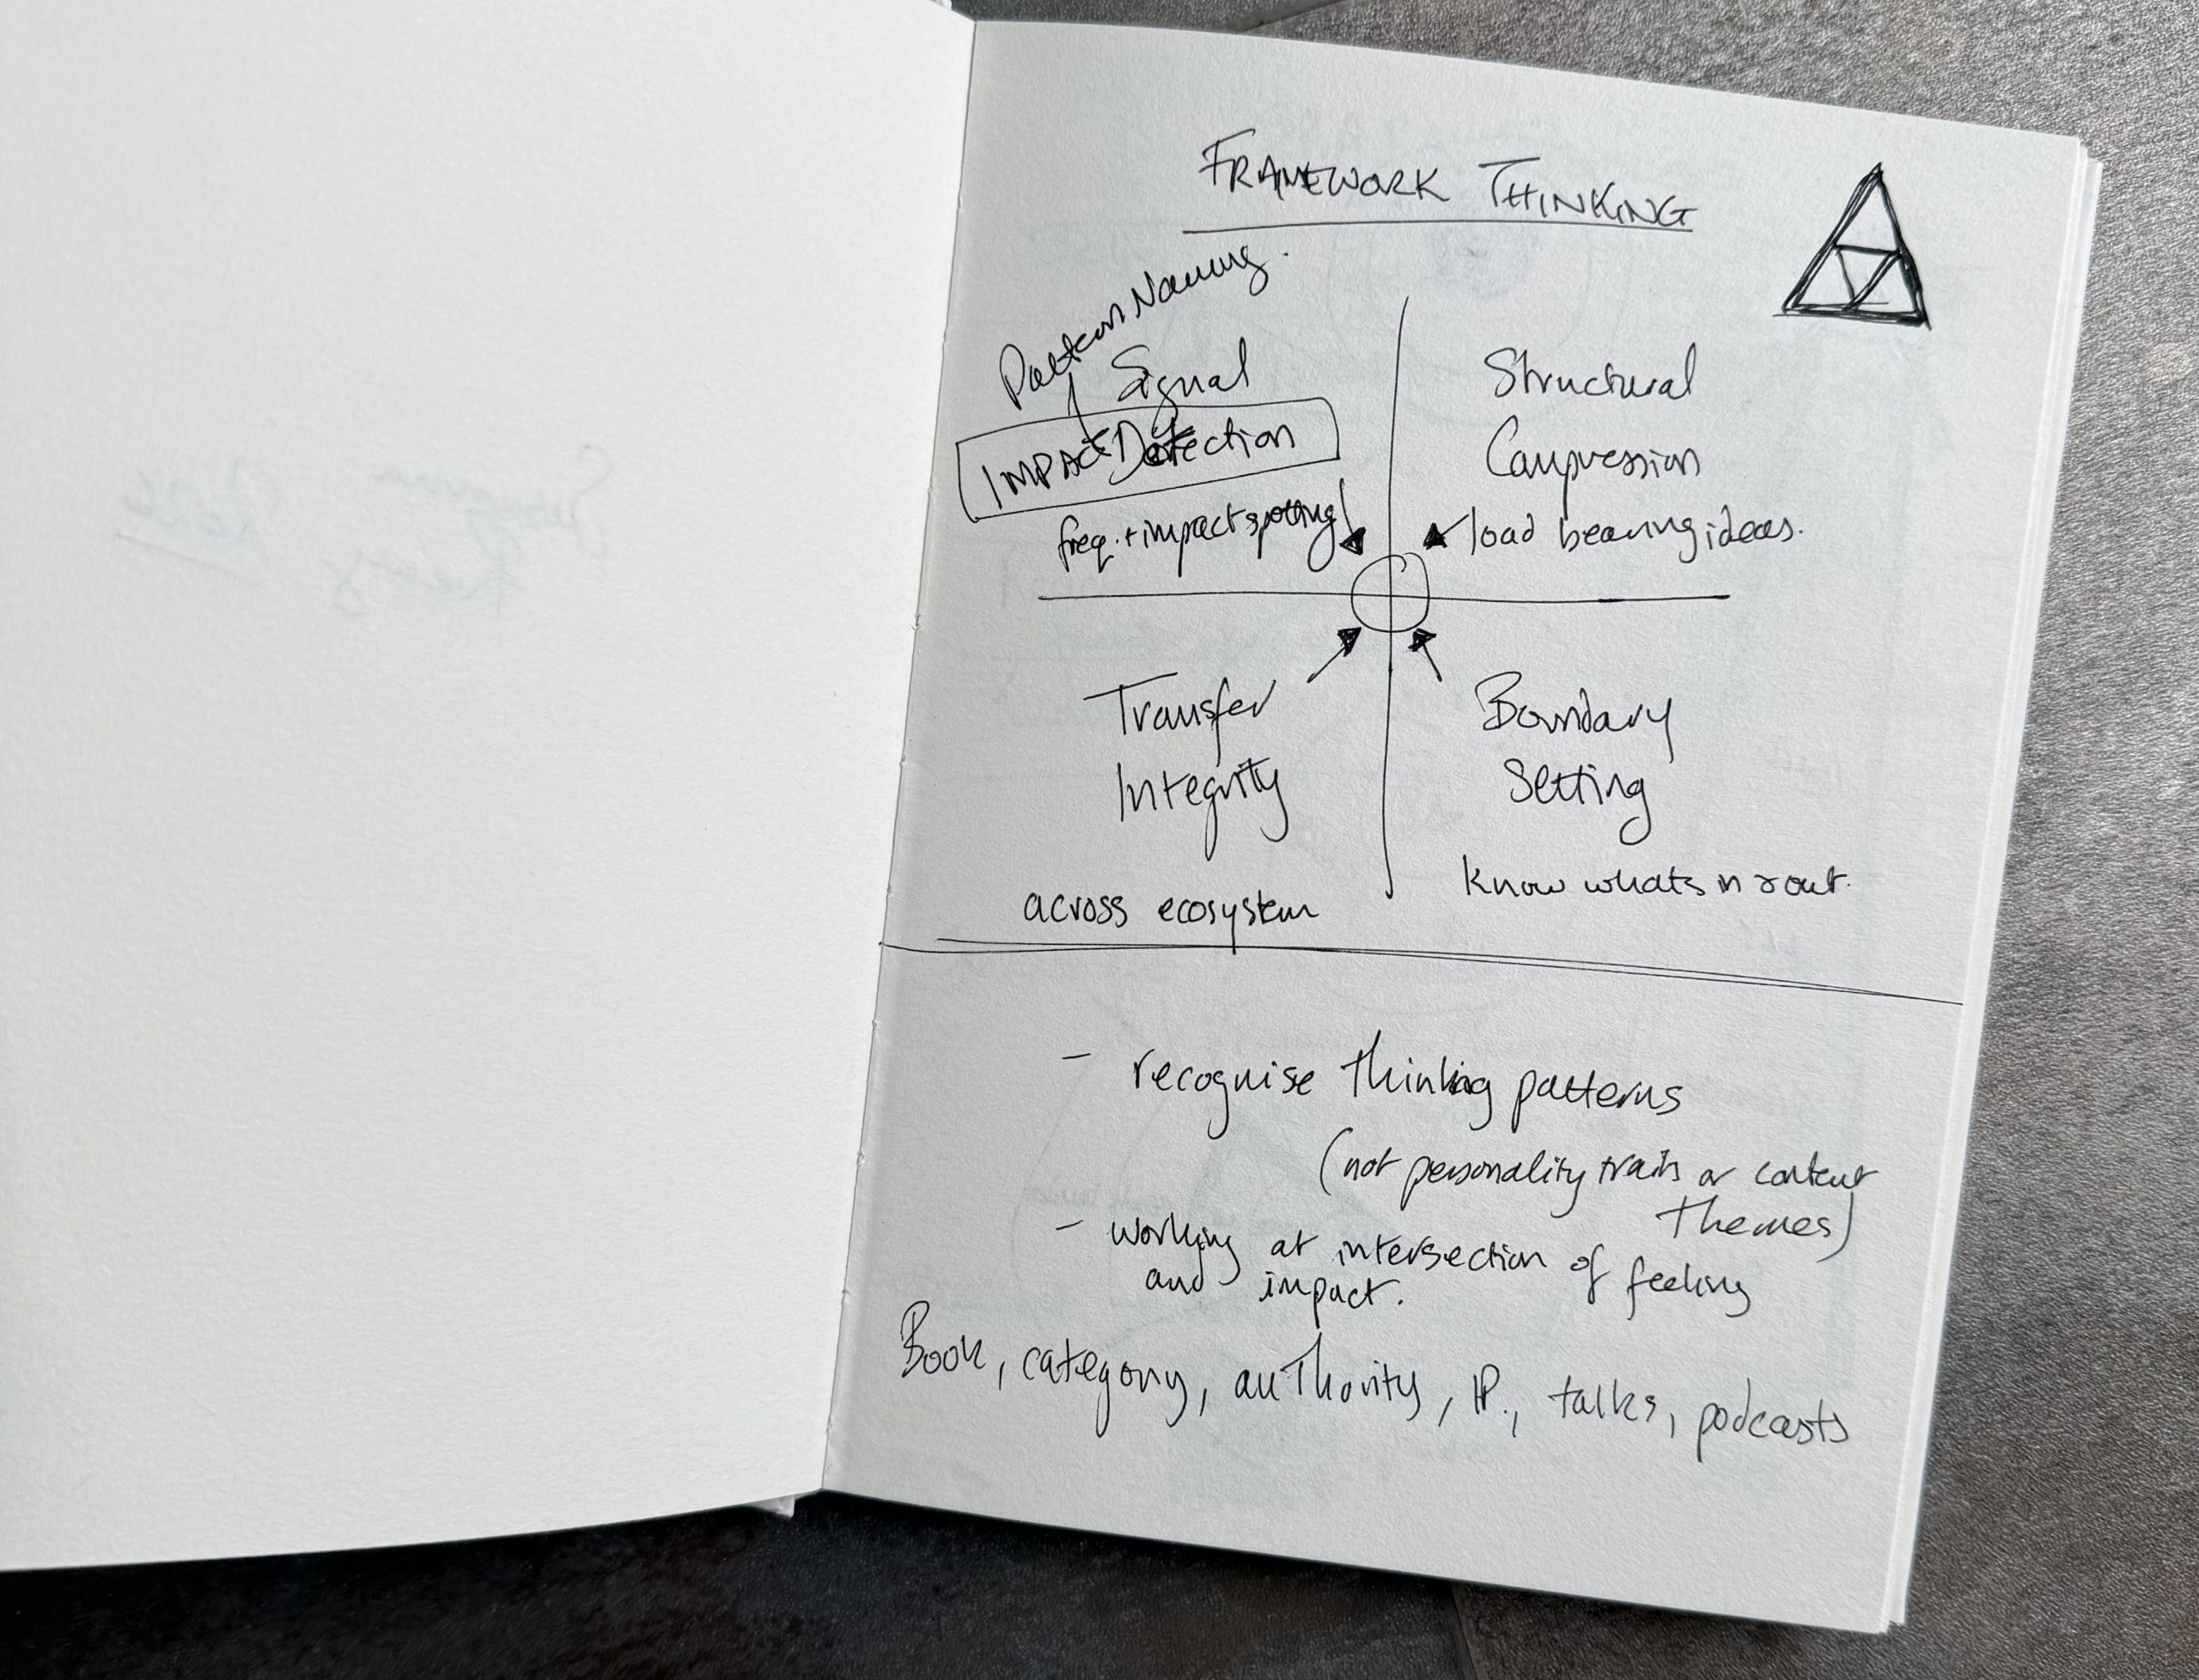 FRAMEWORK THINKING
Pattern Naming.
Signal
IMPACT Detection
freq. + impact spotting
Structural
Compression
load bearing ideas.
Transfer
Integrity
across ecosystem
Boundary
Setting
know whats in & out.
- recognise thinking patterns
(not personality traits or content
themes)
- working at intersection of feeling
and impact.
Book, category, authority, IP., talks, podcasts